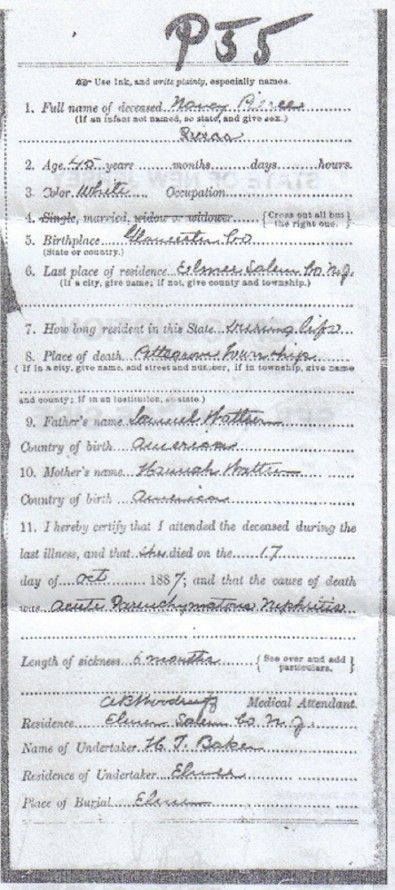 P55
Use Ink, and write plainly, especially names.
1. Full name of deceased Nancy Pierce
(If an infant not named, so state, and give sex.)
2. Age 45 years months days hours.
3. Color White Occupation
4. Single, married, widow or widower {Cross out all but the right one.}
5. Birthplace Gloucester Co
(State or country.)
6. Last place of residence Elmer Salem Co N.J.
(If a city, give name; if not, give county and township.)
7. How long resident in this State During life
8. Place of death Pittsgrove Township
(If in a city, give name, and street and number, if in township, give name
and county; if in an institution, so state.)
9. Father's name Samuel Watson
Country of birth American
10. Mother's name Hannah Watson
Country of birth American
11. I hereby certify that I attended the deceased during the
last illness, and that she died on the 17
day of Oct 1887; and that the cause of death
was Acute Parenchymatous Nephritis
Length of sickness 6 months {See over and add particulars.}
A B Woodruff Medical Attendant.
Residence Elmer Salem Co N.J.
Name of Undertaker H. T. Baker
Residence of Undertaker Elmer
Place of Burial Elmer